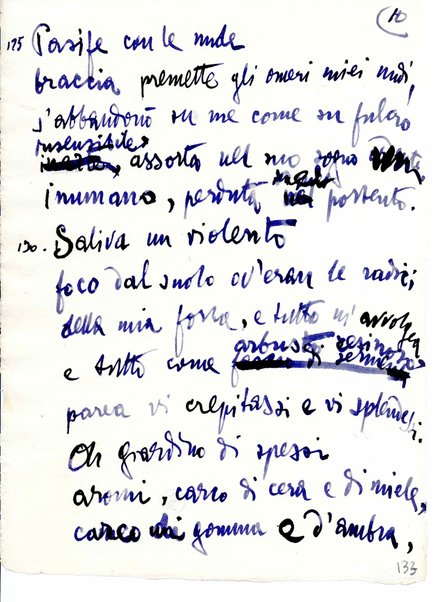 10
125 Pasife con le nude
braccia premette gli omeri miei nudi,
s'abbandonò su me come su fulcro
insensibile,
assorta nel suo sogno
inumano, perduta nel portento.
130. Saliva un violento
foco dal suolo ov'eran le radici
della mia forza, e tutto m'avvolgea
arbusto resinoso
e tutto come
parea vi crepitassi e vi splendessi.
Oh giardino di spessi
aromi, carco di cera e di miele,
carco di gomma e d'ambra,
133